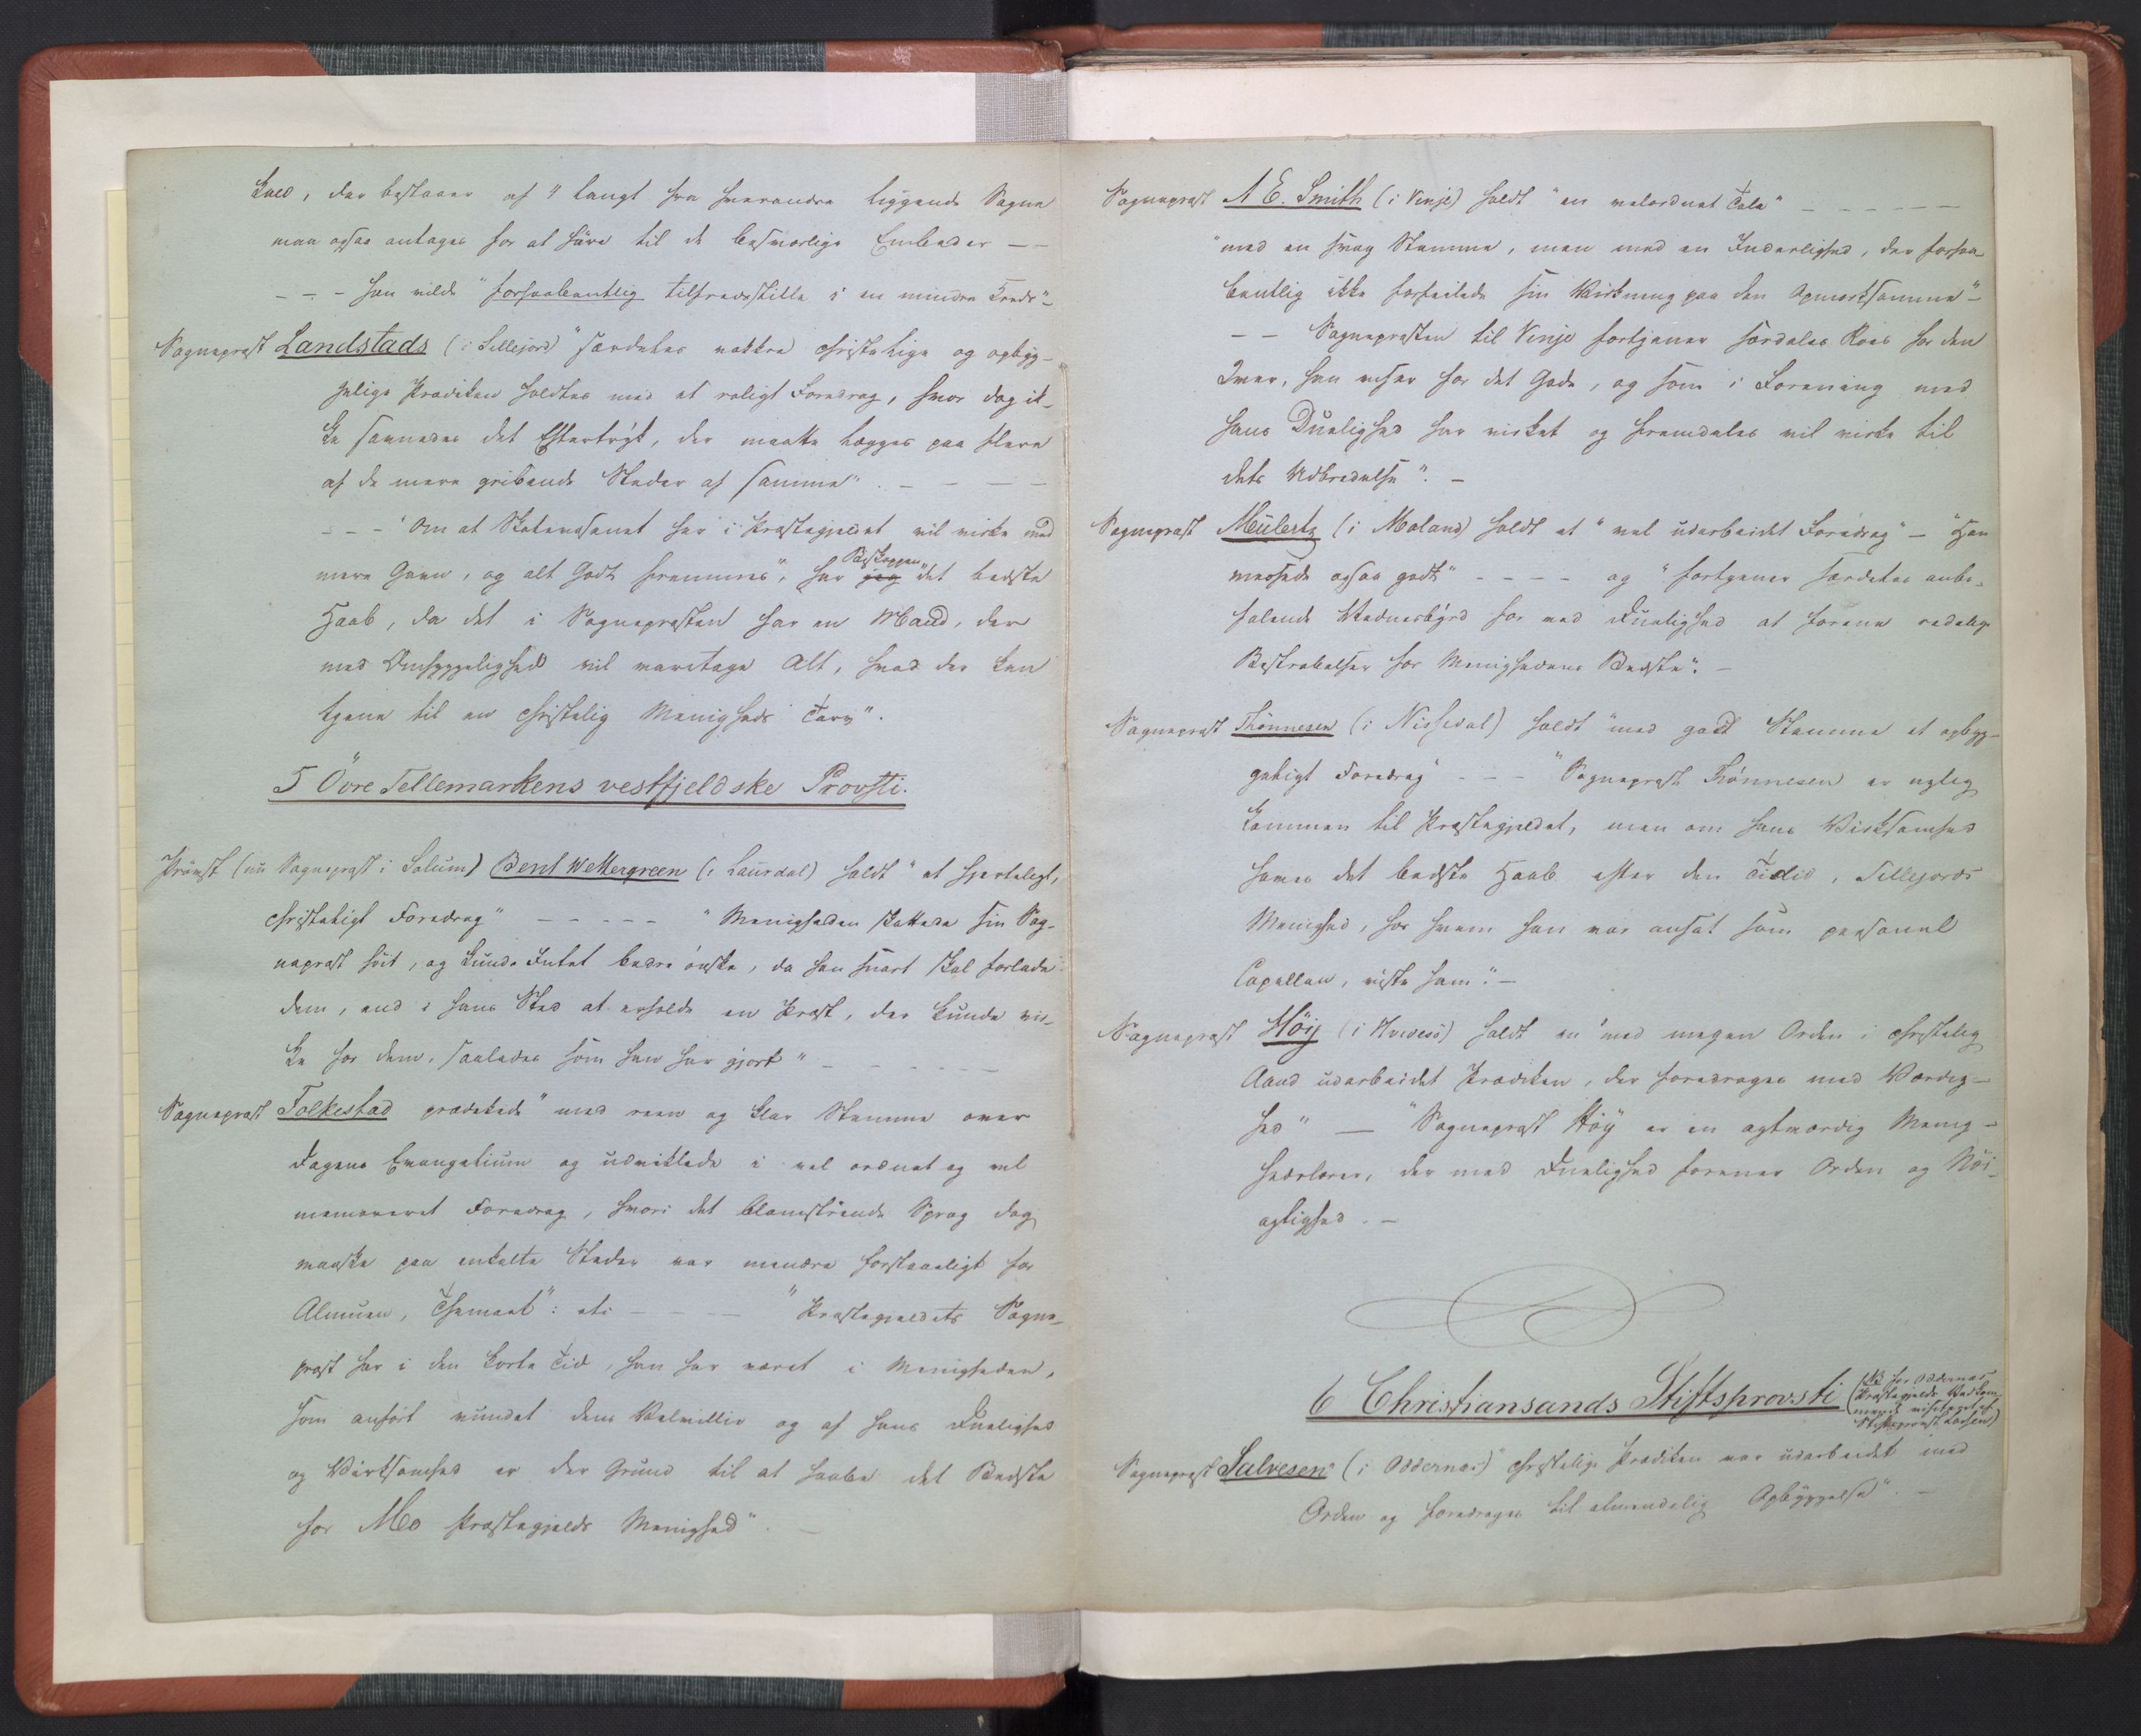 Kald, der bestaaer af 4 langt fra hverandre liggende Sogne
maa ogsaa antages for at høre til de besværlige Embeder – –
– – – han vilde "forhaabentlig tilfredsstille i en mindre Kreds" –
Sogneprest Landstads (i Sillejord) "særdeles vakkre christelige og opbyg-
gelige Prædiken holdtes med et roligt Foredrag, hvor dog ik-
ke savnedes det Eftertryk, der maatte lægges paa flere
af de mere gribende Steder af samme". – – – –
– – – "Om at Skolevæsenet her i Præstegjeldet vil virke med
Biskoppen
mere Gavn, og alt Godt fremmes", har jeg "det bedste
Haab, da det i Sognepresten har en Mand, der
med Omhyggelighed vil varetage Alt, hvad der kan
tjene til en christelig Menigheds Tarv".
5 Övre Tellemarkens vestfjeldske Provsti.
Provst (nu Sogneprest i Solum) Bent Wettergreen (i Laurdal) holdt "et hjerteligt,
christeligt Foredrag" – – – – – "Menigheden skattede sin Sog-
neprest høit, og kunde Intet bedre ønske, da han snart skal forlade
dem, end i hans Sted at erholde en Prest, der kunde vir-
ke for dem, saaledes som han har gjort" – – – – – –
Sogneprest Folkestad prædikede "med reen og klar Stemme over
Dagens Evangelium og udviklede i vel ordnet og vel
memoreret Foredrag, hvori det blomstrende Sprog dog
maaske paa enkelte Steder var mindre forstaaeligt for
Almuen, Themaet": etc – – – – "Præstegjeldets Sogne-
prest har i den korte Tid, han har været i Menigheden,
som anført vundet dens Velvillie og af hans Duelighed
og Virksomhed er der Grund til at haabe det Bedste
for Mo Præstegjelds Menighed". –
Sogneprest A E. Smith (i Vinje) holdt "en velordnet Tale" – – – – –
"med en svag Stemme, men med en Inderlighed, der forhaa-
bentlig ikke forfeilede sin Virkning paa den Opmærksomme" –
– – Sognepresten til Vinje fortjener særdeles Roes for den
Iver, han viser for det Gode, og som i Forening med
hans Duelighed har virket og fremdeles vil virke til
dets Udbredelse". –
Sogneprest Meülertz (i Moland) holdt et "vel udarbeidet Foredrag" – "Han
messede ogsaa godt" – – – – og "fortjener særdeles anbe-
falende Vidnesbyrd for med Duelighed at forene redelig
Bestræbelser for Menighedens Bedste". –
Sogneprest Thönnesen (i Nissedal) holdt "med god Stemme et opbyg-
geligt Foredrag" – – – "Sogneprest Thönnesen er nylig
kommen til Præstegjeldet, men om hans Virksomhed
haves det bedste Haab efter den Tillid, Sillejords
Menighed, for hvem han var ansat som personel
Capellan, viste ham". –
Sogneprest Höÿ (i Hvidesö) holdt en "med megen Orden i christelig
Aand udarbeidet Prædiken, der foredroges med Værdig-
hed" — "Sogneprest Höÿ er en agtværdig Menig-
hedslærer, der med Duelighed forener Orden og Nöi-
agtighed. –
6 Christiansands Stiftsprovsti
(NB for Oddernes
Præstegjelds Vedkom-
mende visiteret af
Stiftsprovst Larsen)
Sogneprest Salvesens (i Oddernes) "christelige Prædiken var udarbeidet med
Orden og foredroges til almindelig Opbyggelse". –